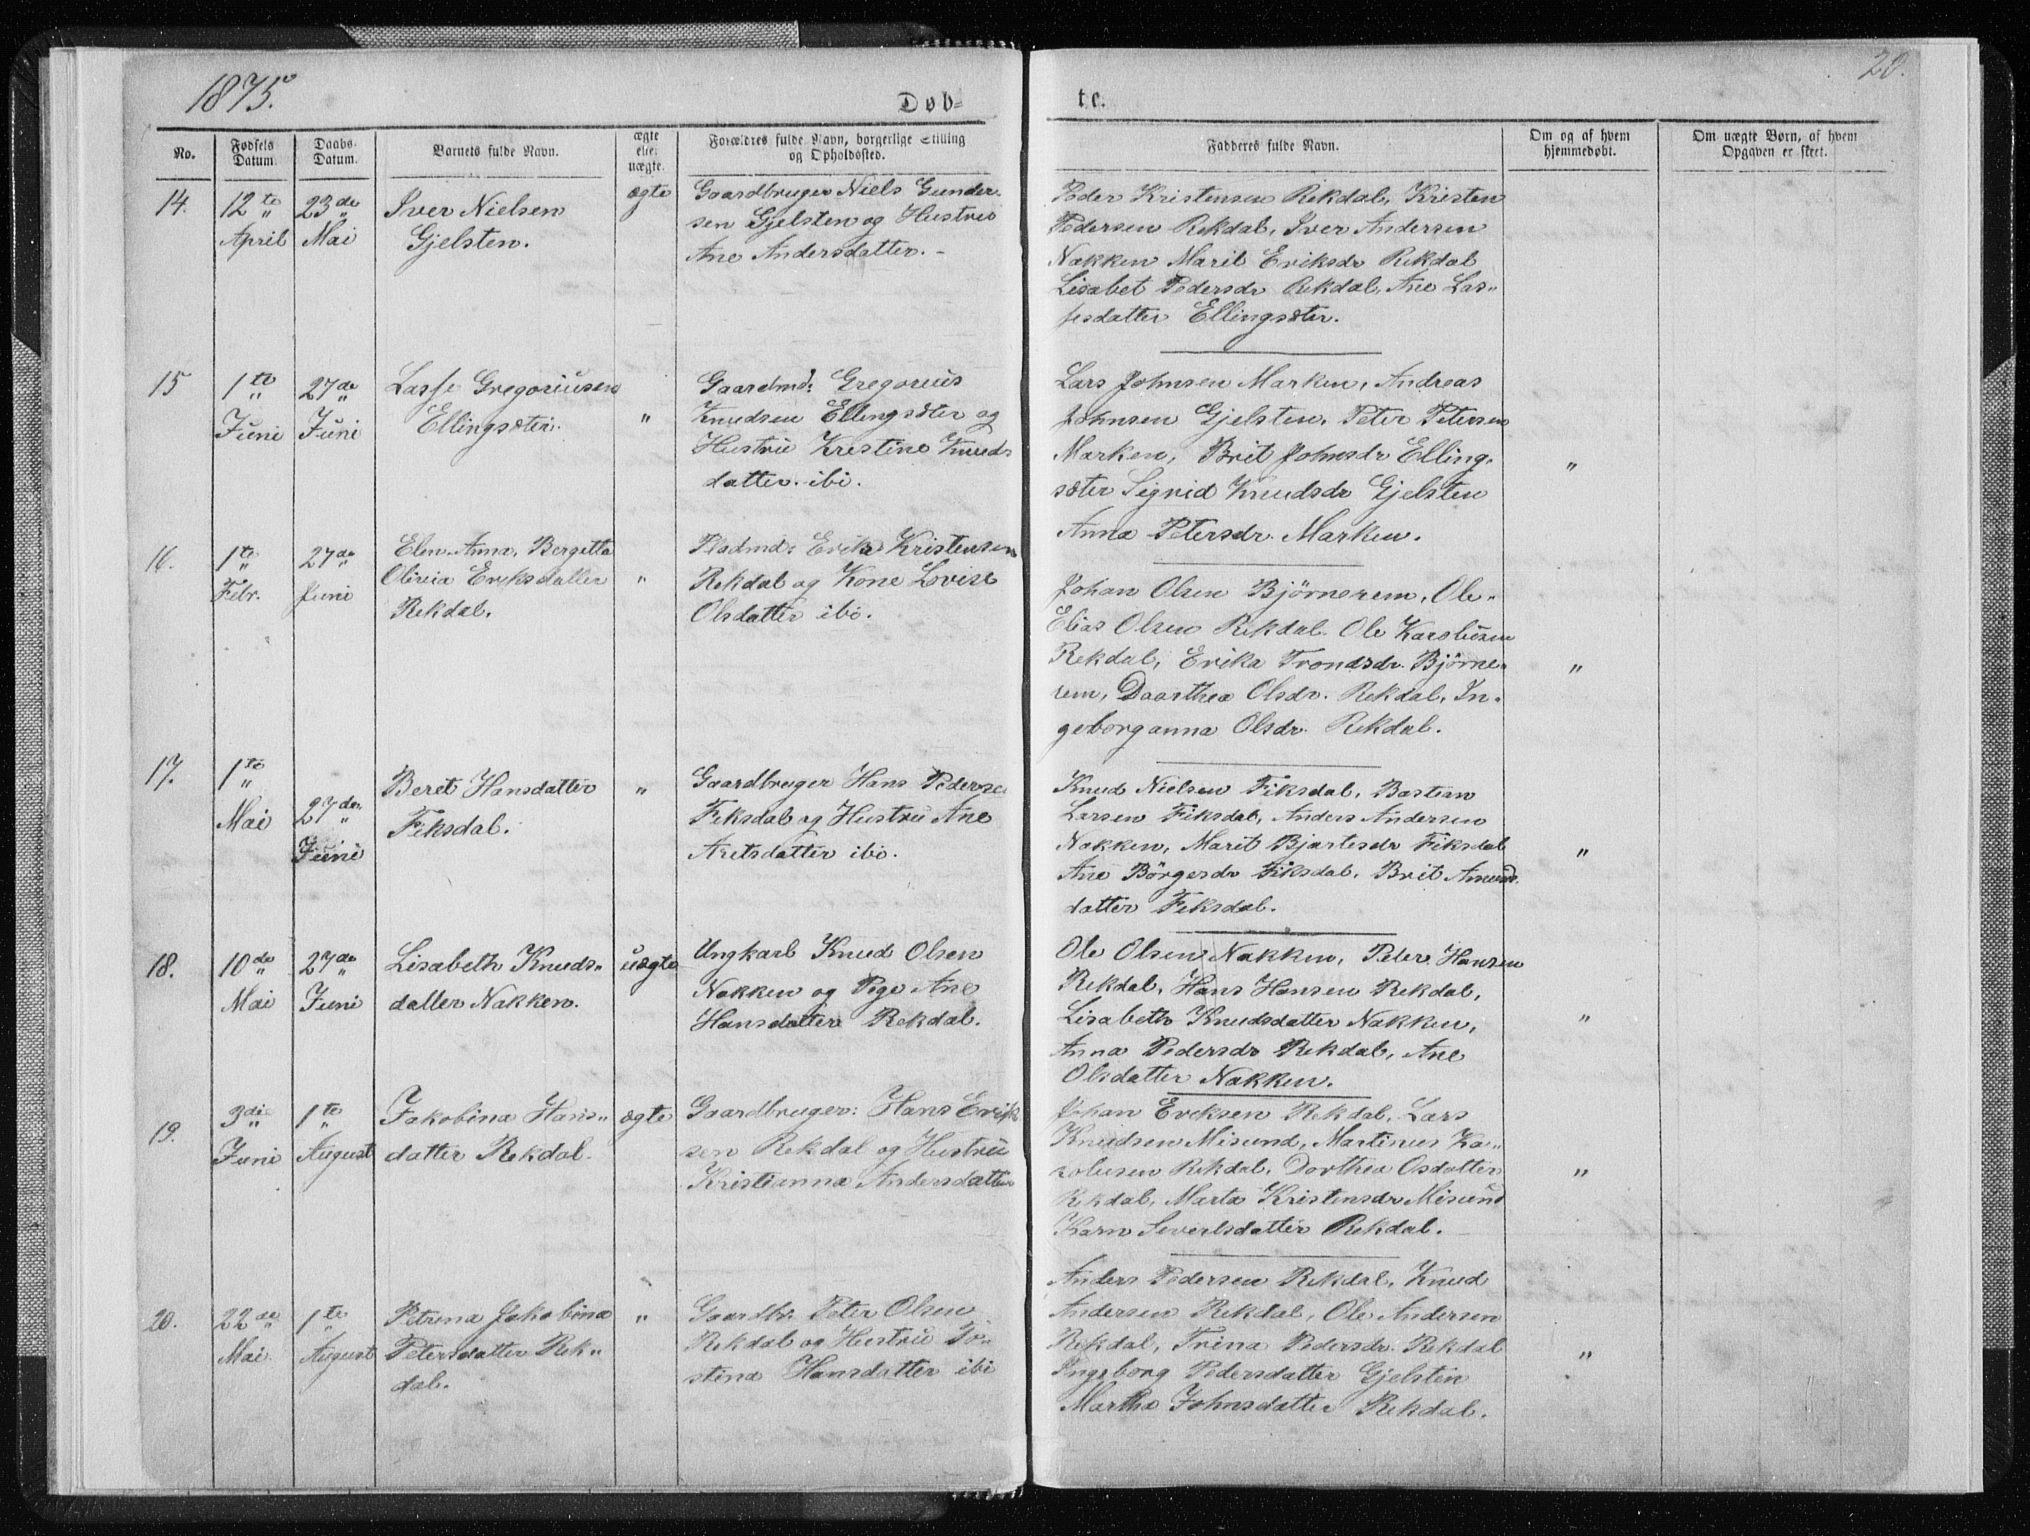 1875.
Døb-
te.
20.
No.
Fødsels Datum.
Daabs- Datum.
Barnets fulde Navn.
ægte eller uægte.
Forældres fulde Navn, borgerlige Stilling og Opholdssted.
Fadderes fulde Navn.
Om og af hvem hjemmedøbt.
Om uægte Børn, af hvem Opgaven er skeet.
14. 12te April 23de Mai
Iver Nielsen
Gjelsten.
ægte
Gaardbruger Niels Gunder-
sen Gjelsten og Hustru
Ane Andersdatter. -
Peder Kristensen Rekdal, Kristen
Pedersen Rekdal, Iver Andersen
Nakken Marit Eriksdr Rekdal
Lisabet Pedersdr Rekdal, Ane Las-
sesdatter Ellingsæter.
15 1te Juni 27de Juni
Lasse Gregoriusen
Ellingsæter.
"
Gaardmd: Gregorius
Knudsen Ellingsæter og
Hustru Kristine Knuds
datter. ibi.
Lars Johnsen Marken, Andreas
Johnsen Gjelsten, Peter Petersen
Marken, Brit Johnsdr Elling-
sæter Sigrid Knudsdr Gjelsten
Anna Petersdr. Marken.
"
16. 1te Febr. 27de Juni
Elen Anna, Bergetta
Olivia Eriksdatter
Rekdal.
"
Pladmd: Erik Kristensen
Rekdal og Kone Lovise
Olsdatter ibi.
Johan Olsen Bjørnerem, Ole-
Elias Olsen Rekdal. Ole Karolusen
Rekdal, Erika Trondsdr. Bjørne-
rem, Daarthea Olsdr. Rekdal, In-
geborganna Olsdr. Rekdal.
"
17. 1te Mai 27de Juni
Beret Hansdatter
Fiksdal.
"
Gaardbruger Hans Pederse
Fiksdal og Hustru Ane
Aretsdatter ibi.
Knud Nielsen Fiksdal, Bastian
Larsen Fiksdal, Anders Andersen
Nakken, Marit Bjartesdr Fiksdal
Ane Børgesdr Fiksdal, Brit Amund
datter Fiksdal.
"
18. 10de Mai 27de Juni
Lisabeth Knuds-
datter Nakken.
uægte
Ungkarl Knud Olsen
Nakken og Pige Ane
Hansdatter Rekdal.
Ole Olsen Nakken, Peter Hansen
Rekdal, Hans Hansen Rekdal,
Lisabeth Knudsdatter Nakken,
Anna Pedersdr Rekdal, Ane
Olsdatter Nakken.
"
19. 3die Juni 1te August
Jakobina Hans-
datter Rekdal.
ægte
Gaardbruger: Hans Erik
sen Rekdal og Hustru
Kristianna Andersdatter
Johan Eriksen Rekdal, Lars
Knudsen Misund, Martinus Ka-
rolusen Rekdal, Dorthea Osdatter
Rekdal, Marta Kristensdr Misund
Karn Severtsdatter Rekdal.
"
20. 22de Mai 1te August
Petrina Jakobina
Petersdatter Rek-
dal.
"
Gaardbr. Peter Olsen
Rekdal og Hustru Jo-
stina Hansdatter ibi
Anders Pedersen Rekdal, Knud
Andersen Rekdal, Ole Andersen
Rekdal, Trina Pedersdr. Rekdal
Ingeborg Pedersdatter Gjelsten
Martha Johnsdatter Rekdal.
"